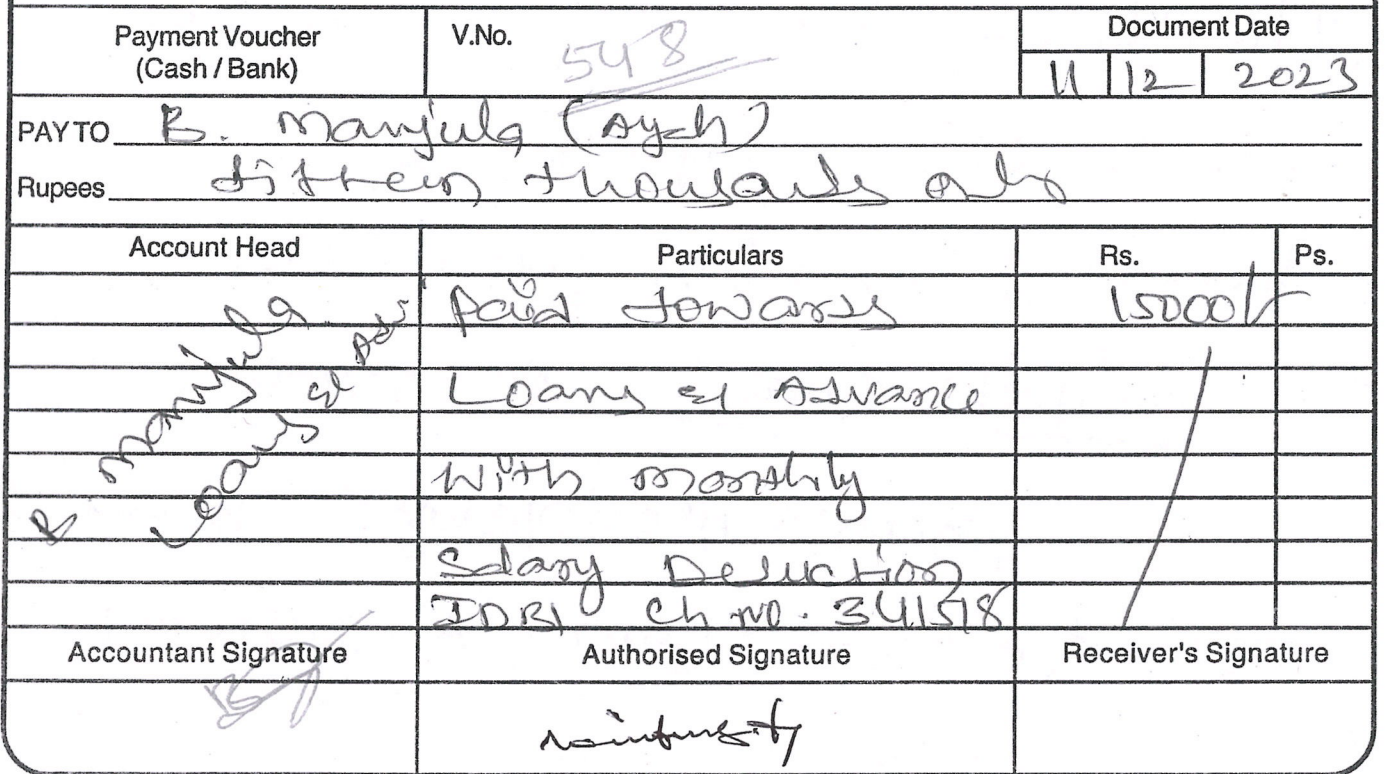 Payment Voucher
(Cash / Bank)
V.No. 548
Document Date
11 12 2023
PAY TO B. Manjula (Ayah)
Rupees fifteen thousands only
Account Head Particulars Rs. Ps.
B Manjula
Loans & Adv
Paid towards 15000/-
Loans & Advance
With monthly
Salary Deduction
IDBI Ch no. 341518
Accountant Signature Authorised Signature Receiver's Signature